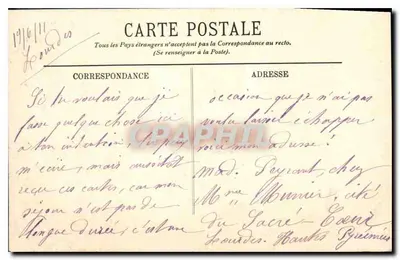 19/6/11
Lourdes
CARTE POSTALE
Tous les Pays étrangers n'acceptent pas la Correspondance au recto.
(Se renseigner à la Poste).
CORRESPONDANCE
Si tu voulais que je
fasse quelque chose ici
à ton intention
m'écire, mais aussitôt
reçu ces cartes, car mon
séjour n'est pas de
longue durée, c'est une
ADRESSE
occasion que je n'ai pas
voulu laisser échapper
voici mon adresse!
mad. Peyrant, chez
Mme Munier, cité
du Sacré Cœur
Lourdes. Hautes Pyrénées